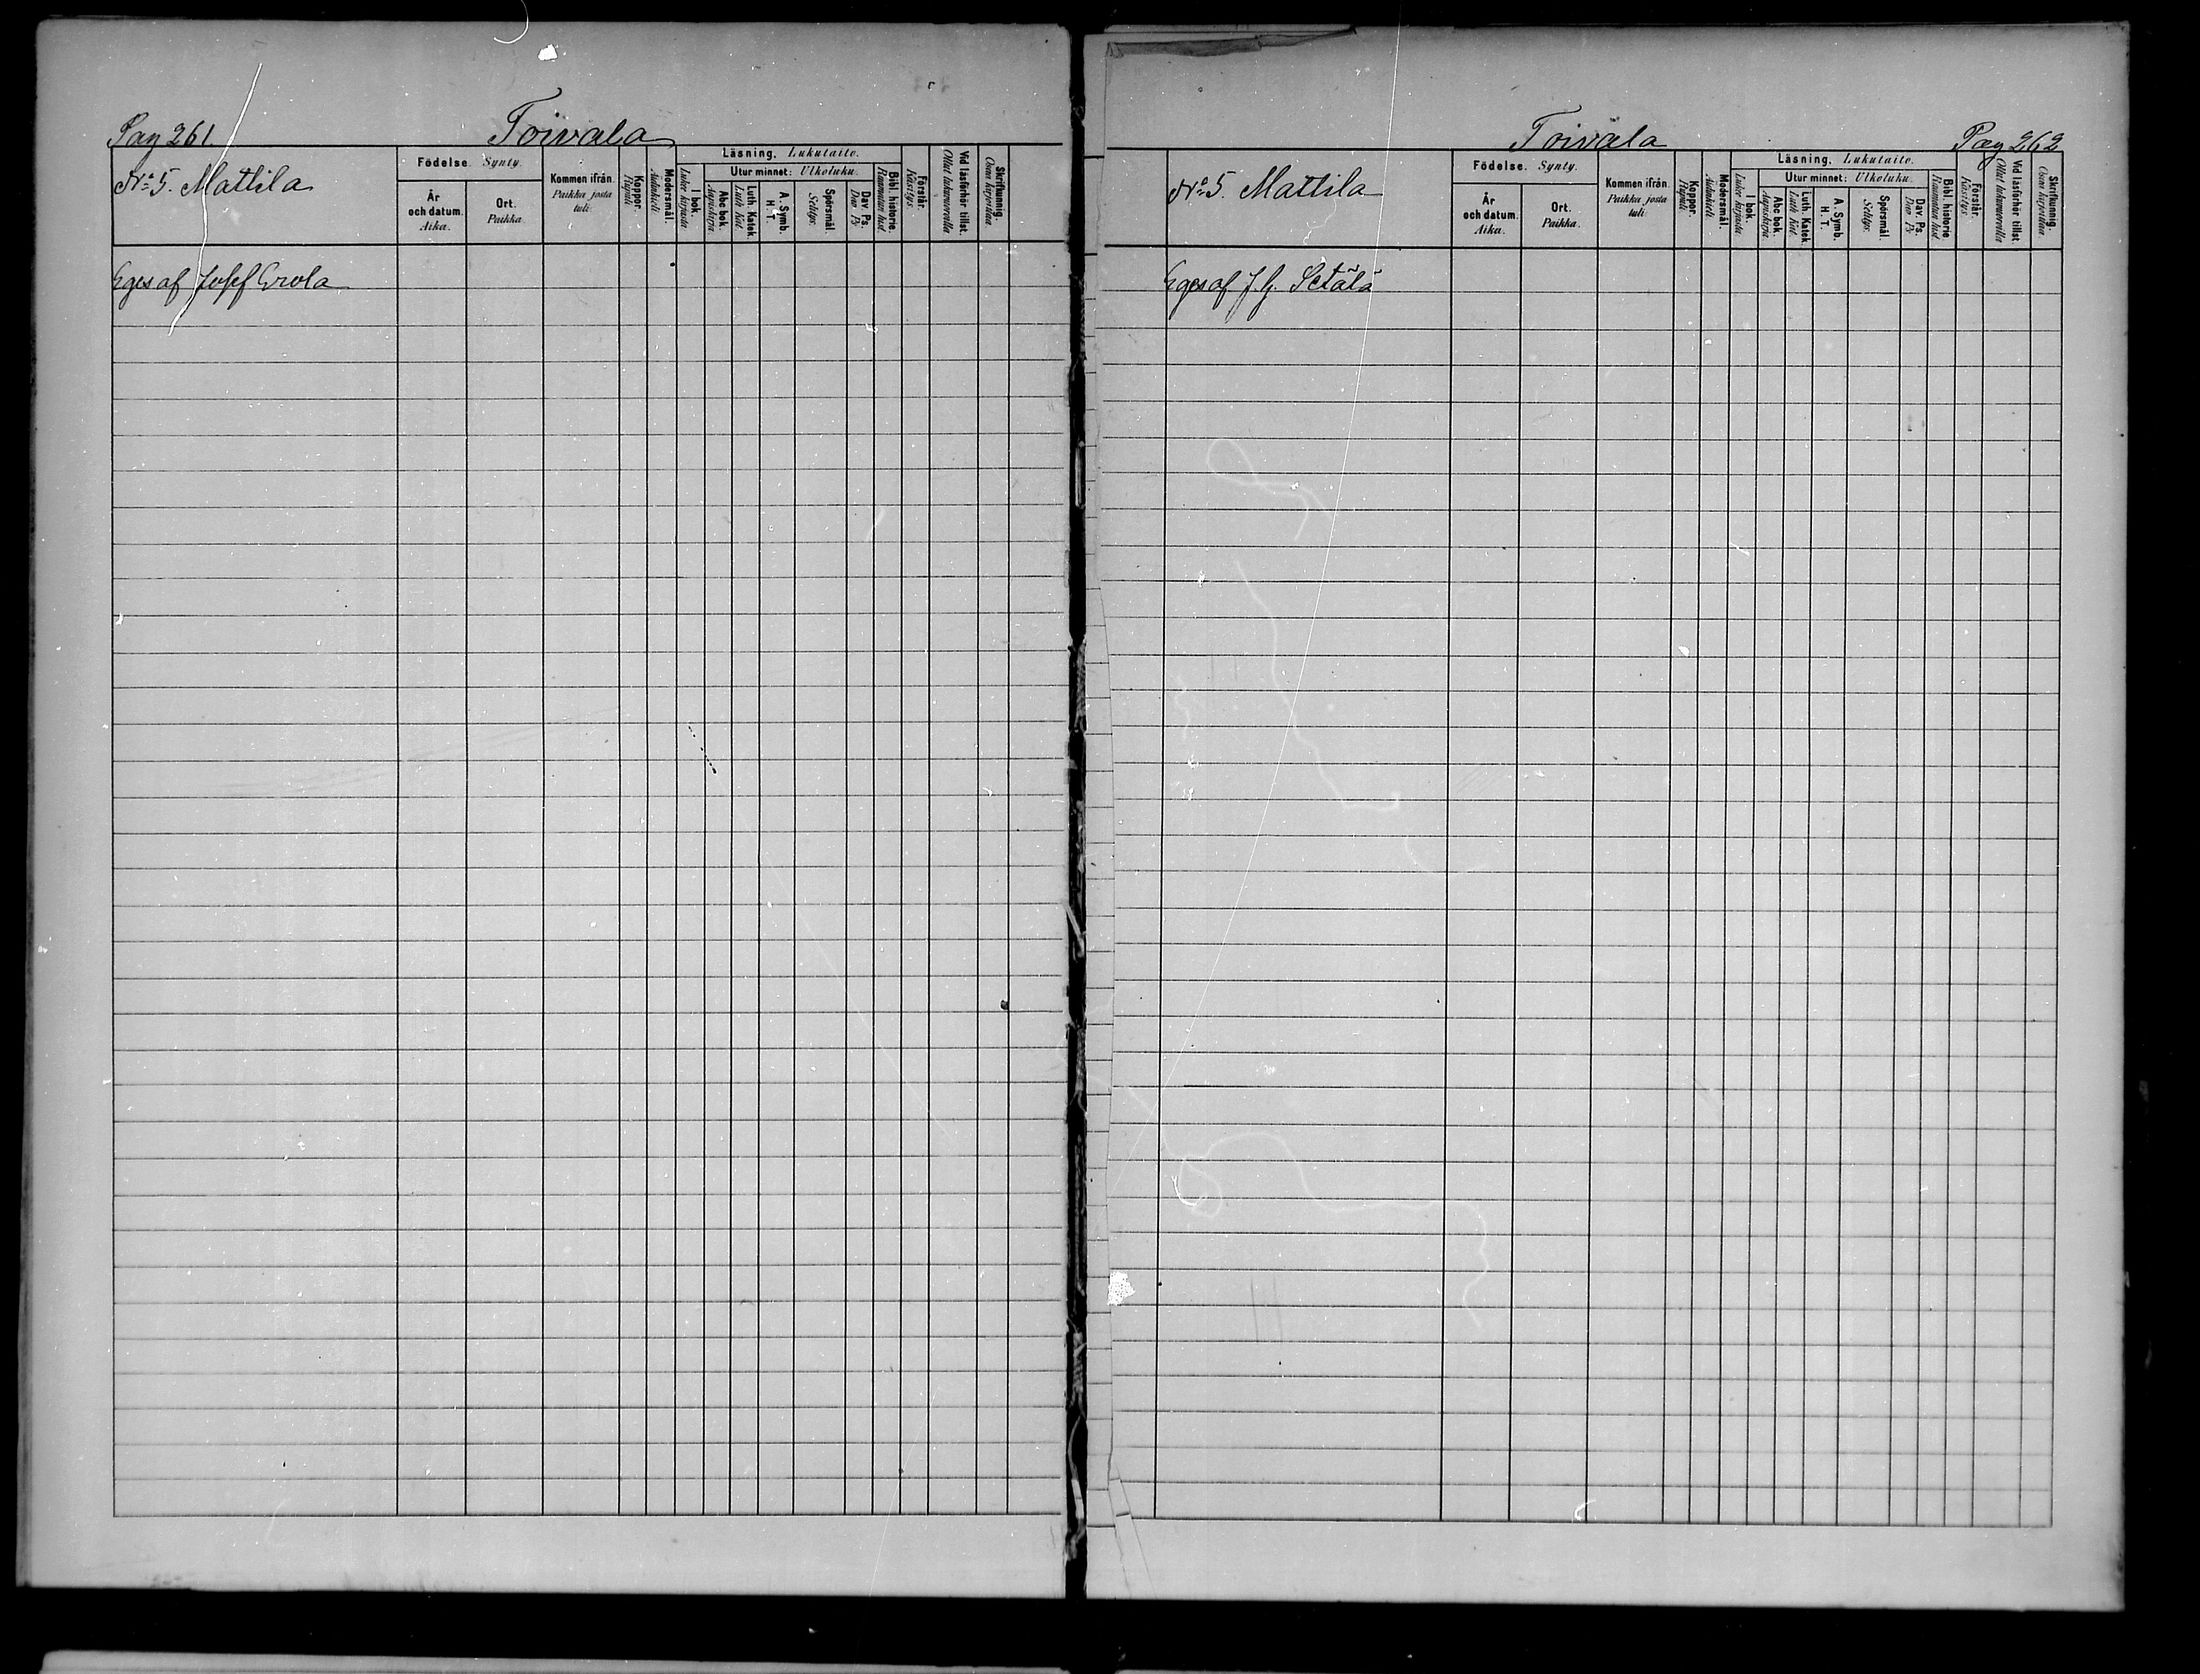 Pag 261.
Toivala
No 5. Mattila
Födelse. Synty.
År och datum. Aika.
Ort. Paikka.
Kommen ifrån. Paikka josta tuli.
Koppor. Rupuli
Modersmål. Äidinkieli.
Läsning. Lukutaito.
I bok. Lukee kirjasta.
Utur minnet: Ulkoluku.
Abc bok. Aapiskirja.
Luth. Katek. Luth. Kat.
A. Symb. H. T.
Spörsmål. Selitys.
Dav. Ps. Dav. Ps
Bibl. historie. Raamatun hist.
Förstår. Käsitys.
Vid läsförhör tillst. Ollut lukuvuorolla
Skrifkunnig. Osaa kirjoittaa
Eges af Josef Erola
Toivala
Pag 262
No 5. Mattila
Födelse. Synty.
År och datum. Aika.
Ort. Paikka.
Kommen ifrån. Paikka josta tuli.
Koppor. Rupuli
Modersmål. Äidinkieli.
Läsning. Lukutaito.
I bok. Lukee kirjasta.
Utur minnet: Ulkoluku.
Abc bok. Aapiskirja.
Luth. Katek. Luth. Kat.
A. Symb. H. T.
Spörsmål. Selitys.
Dav. Ps. Dav. Ps
Bibl. historie Raamatun hist.
Förstår. Käsitys.
Vid läsförhör tillst. Ollut lukuvuorolla
Skrifkunnig. Osaa kirjoittaa
Eges af J. G. Setälä